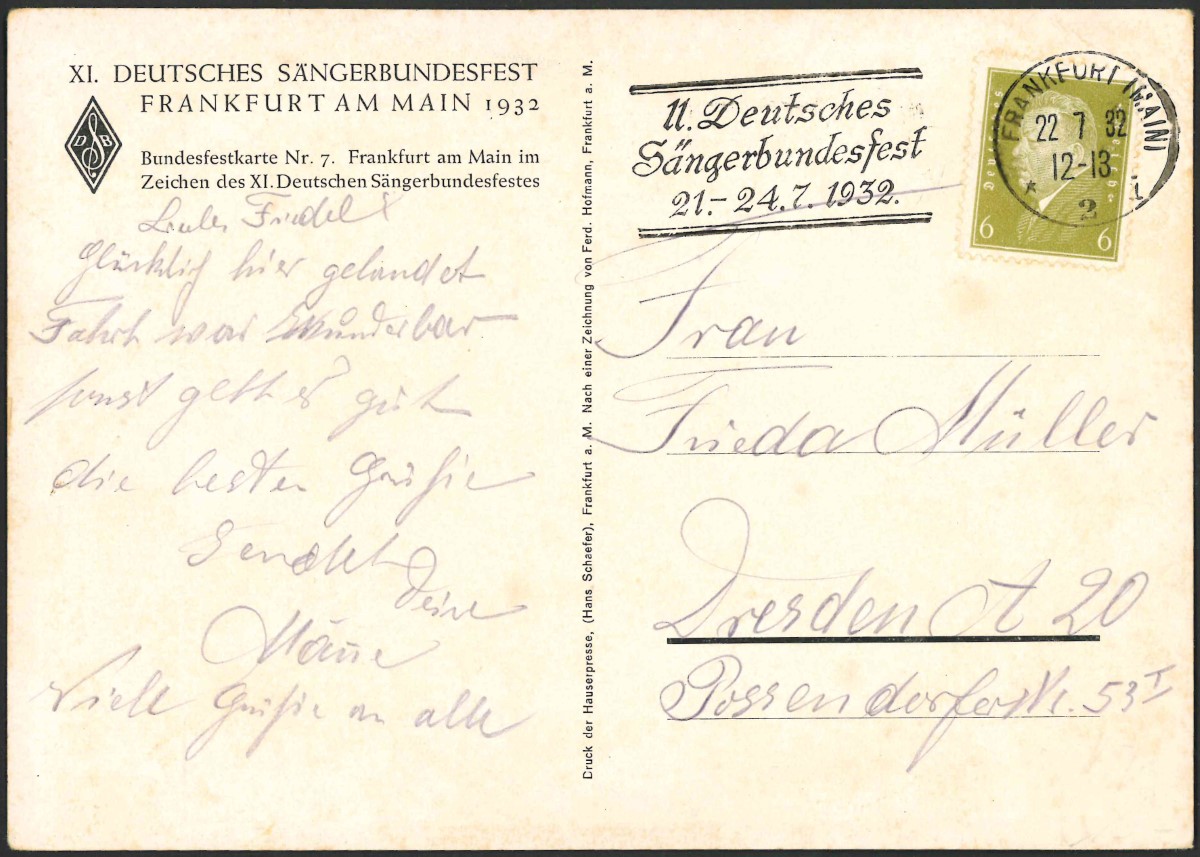 XI. DEUTSCHES SÄNGERBUNDESFEST
FRANKFURT AM MAIN 1932
DSB
Bundesfestkarte Nr. 7. Frankfurt am Main im
Zeichen des XI. Deutschen Sängerbundesfestes
Friedel
Glücklich hier gelandet
Fahrt war Wunderbar
sonst geht es gut
die besten Grüße
Sendet
Deine
Mäne
Viele Grüße an alle
Druck der Hauserpresse, (Hans Schaefer), Frankfurt a. M. Nach einer Zeichnung von Ferd. Hofmann, Frankfurt a. M.
11. Deutsches
Sängerbundesfest
21.-24.7.1932.
Deutsches Reich
6 6
FRANKFURT (MAIN)
22 7 32
12-13
* 2 i
Frau
Frieda Müller
Dresden A 20
Possendorferstr. 53 I